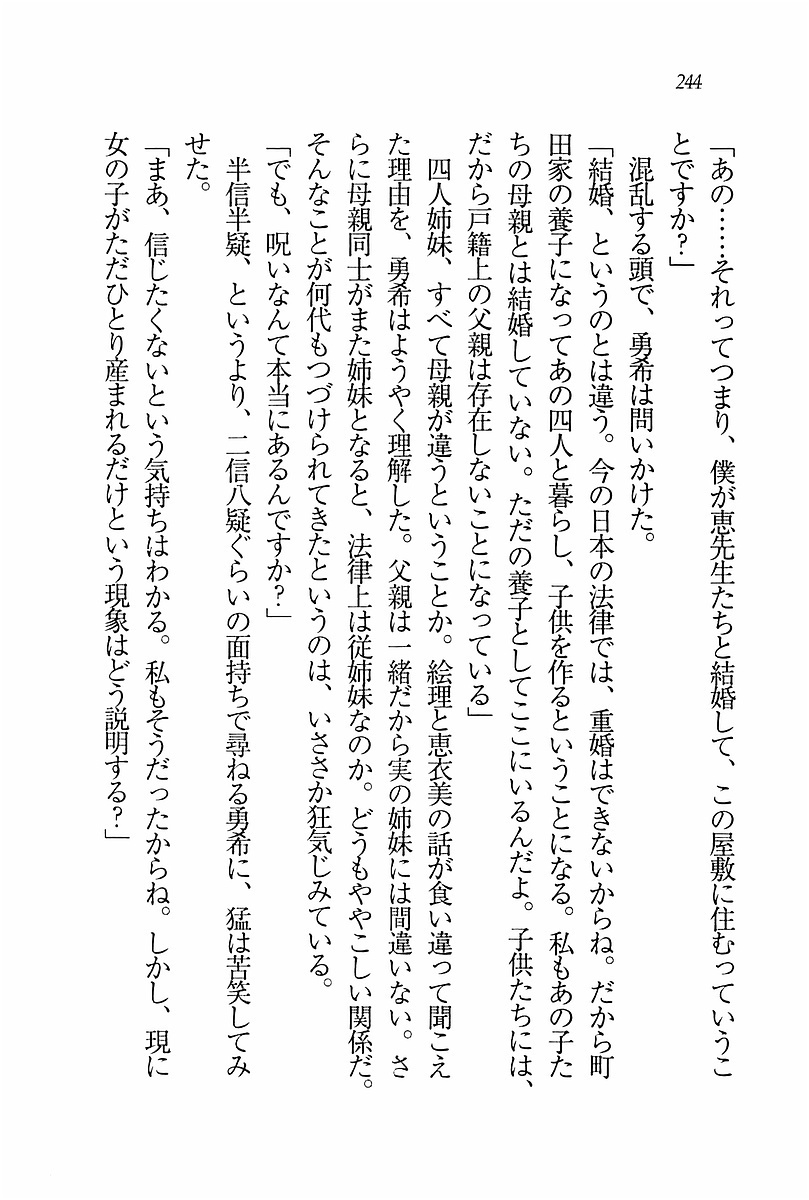 244
「あの……それってつまり、僕が恵先生たちと結婚して、この屋敷に住むっていうこ
とですか？」
　混乱する頭で、勇希は問いかけた。
「結婚、というのとは違う。今の日本の法律では、重婚はできないからね。だから町
田家の養子になってあの四人と暮らし、子供を作るということになる。私もあの子た
ちの母親とは結婚していない。ただの養子としてここにいるんだよ。子供たちには、
だから戸籍上の父親は存在しないことになっている」
　四人姉妹、すべて母親が違うということか。絵理と恵衣美の話が食い違って聞こえ
た理由を、勇希はようやく理解した。父親は一緒だから実の姉妹には間違いない。さ
らに母親同士がまた姉妹となると、法律上は従姉妹なのか。どうもややこしい関係だ。
そんなことが何代もつづけられてきたというのは、いささか狂気じみている。
「でも、呪いなんて本当にあるんですか？」
　半信半疑、というより、二信八疑ぐらいの面持ちで尋ねる勇希に、猛は苦笑してみ
せた。
「まあ、信じたくないという気持ちはわかる。私もそうだったからね。しかし、現に
女の子がただひとり産まれるだけという現象はどう説明する？」